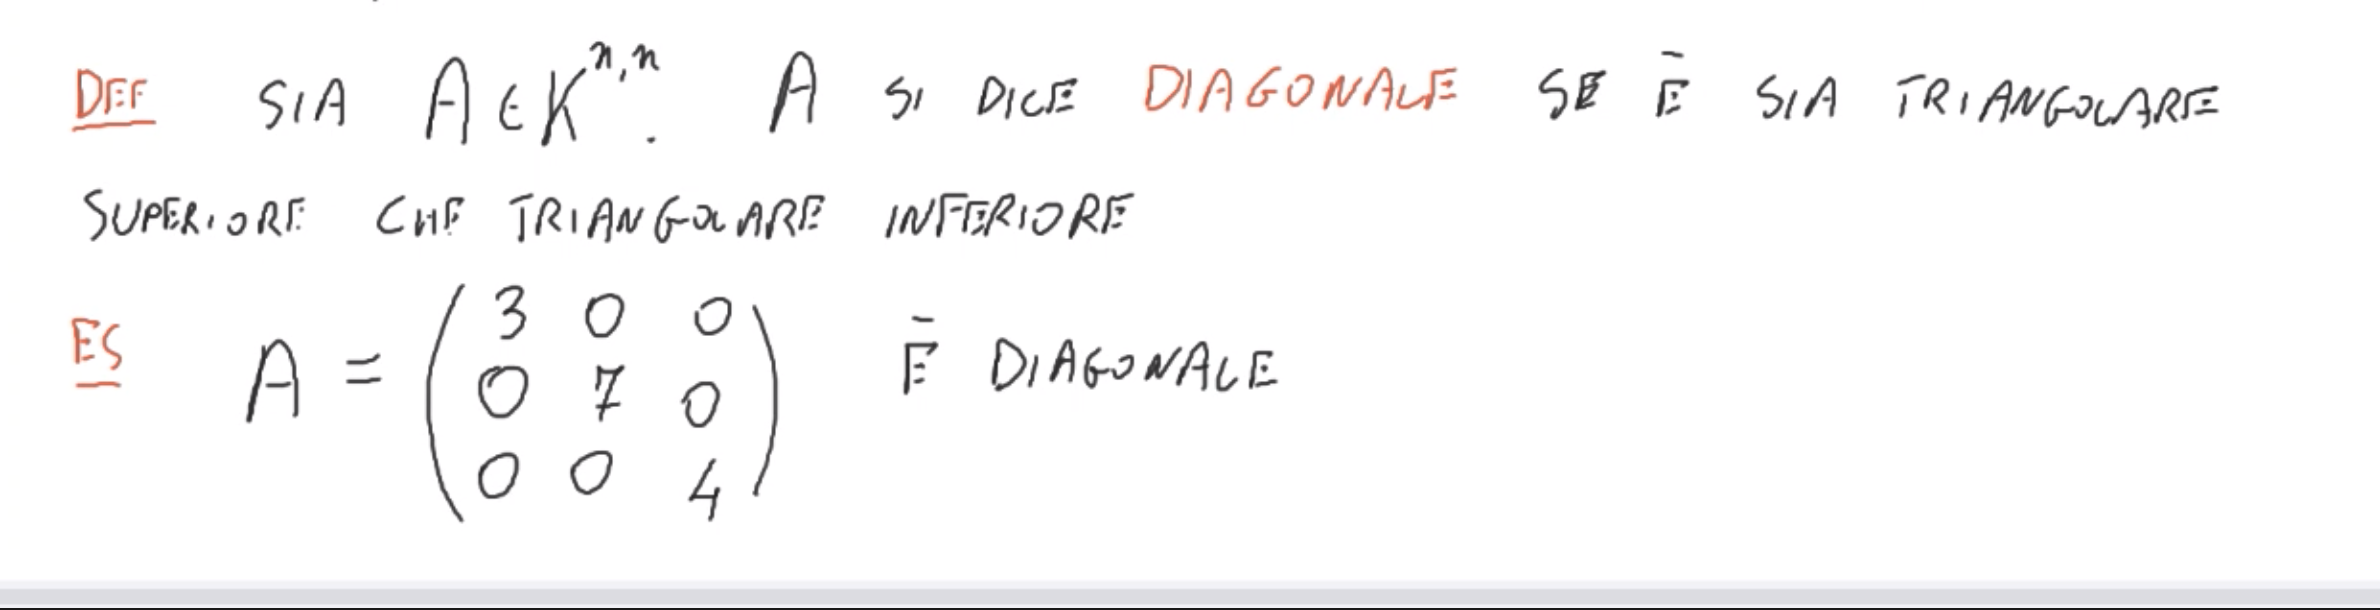 DEF SIA A ∈ K^{n,n}. A SI DICE DIAGONALE SE È SIA TRIANGOLARE
SUPERIORE CHE TRIANGOLARE INFERIORE
ES A = ( 3 0 0
0 7 0
0 0 4 ) È DIAGONALE